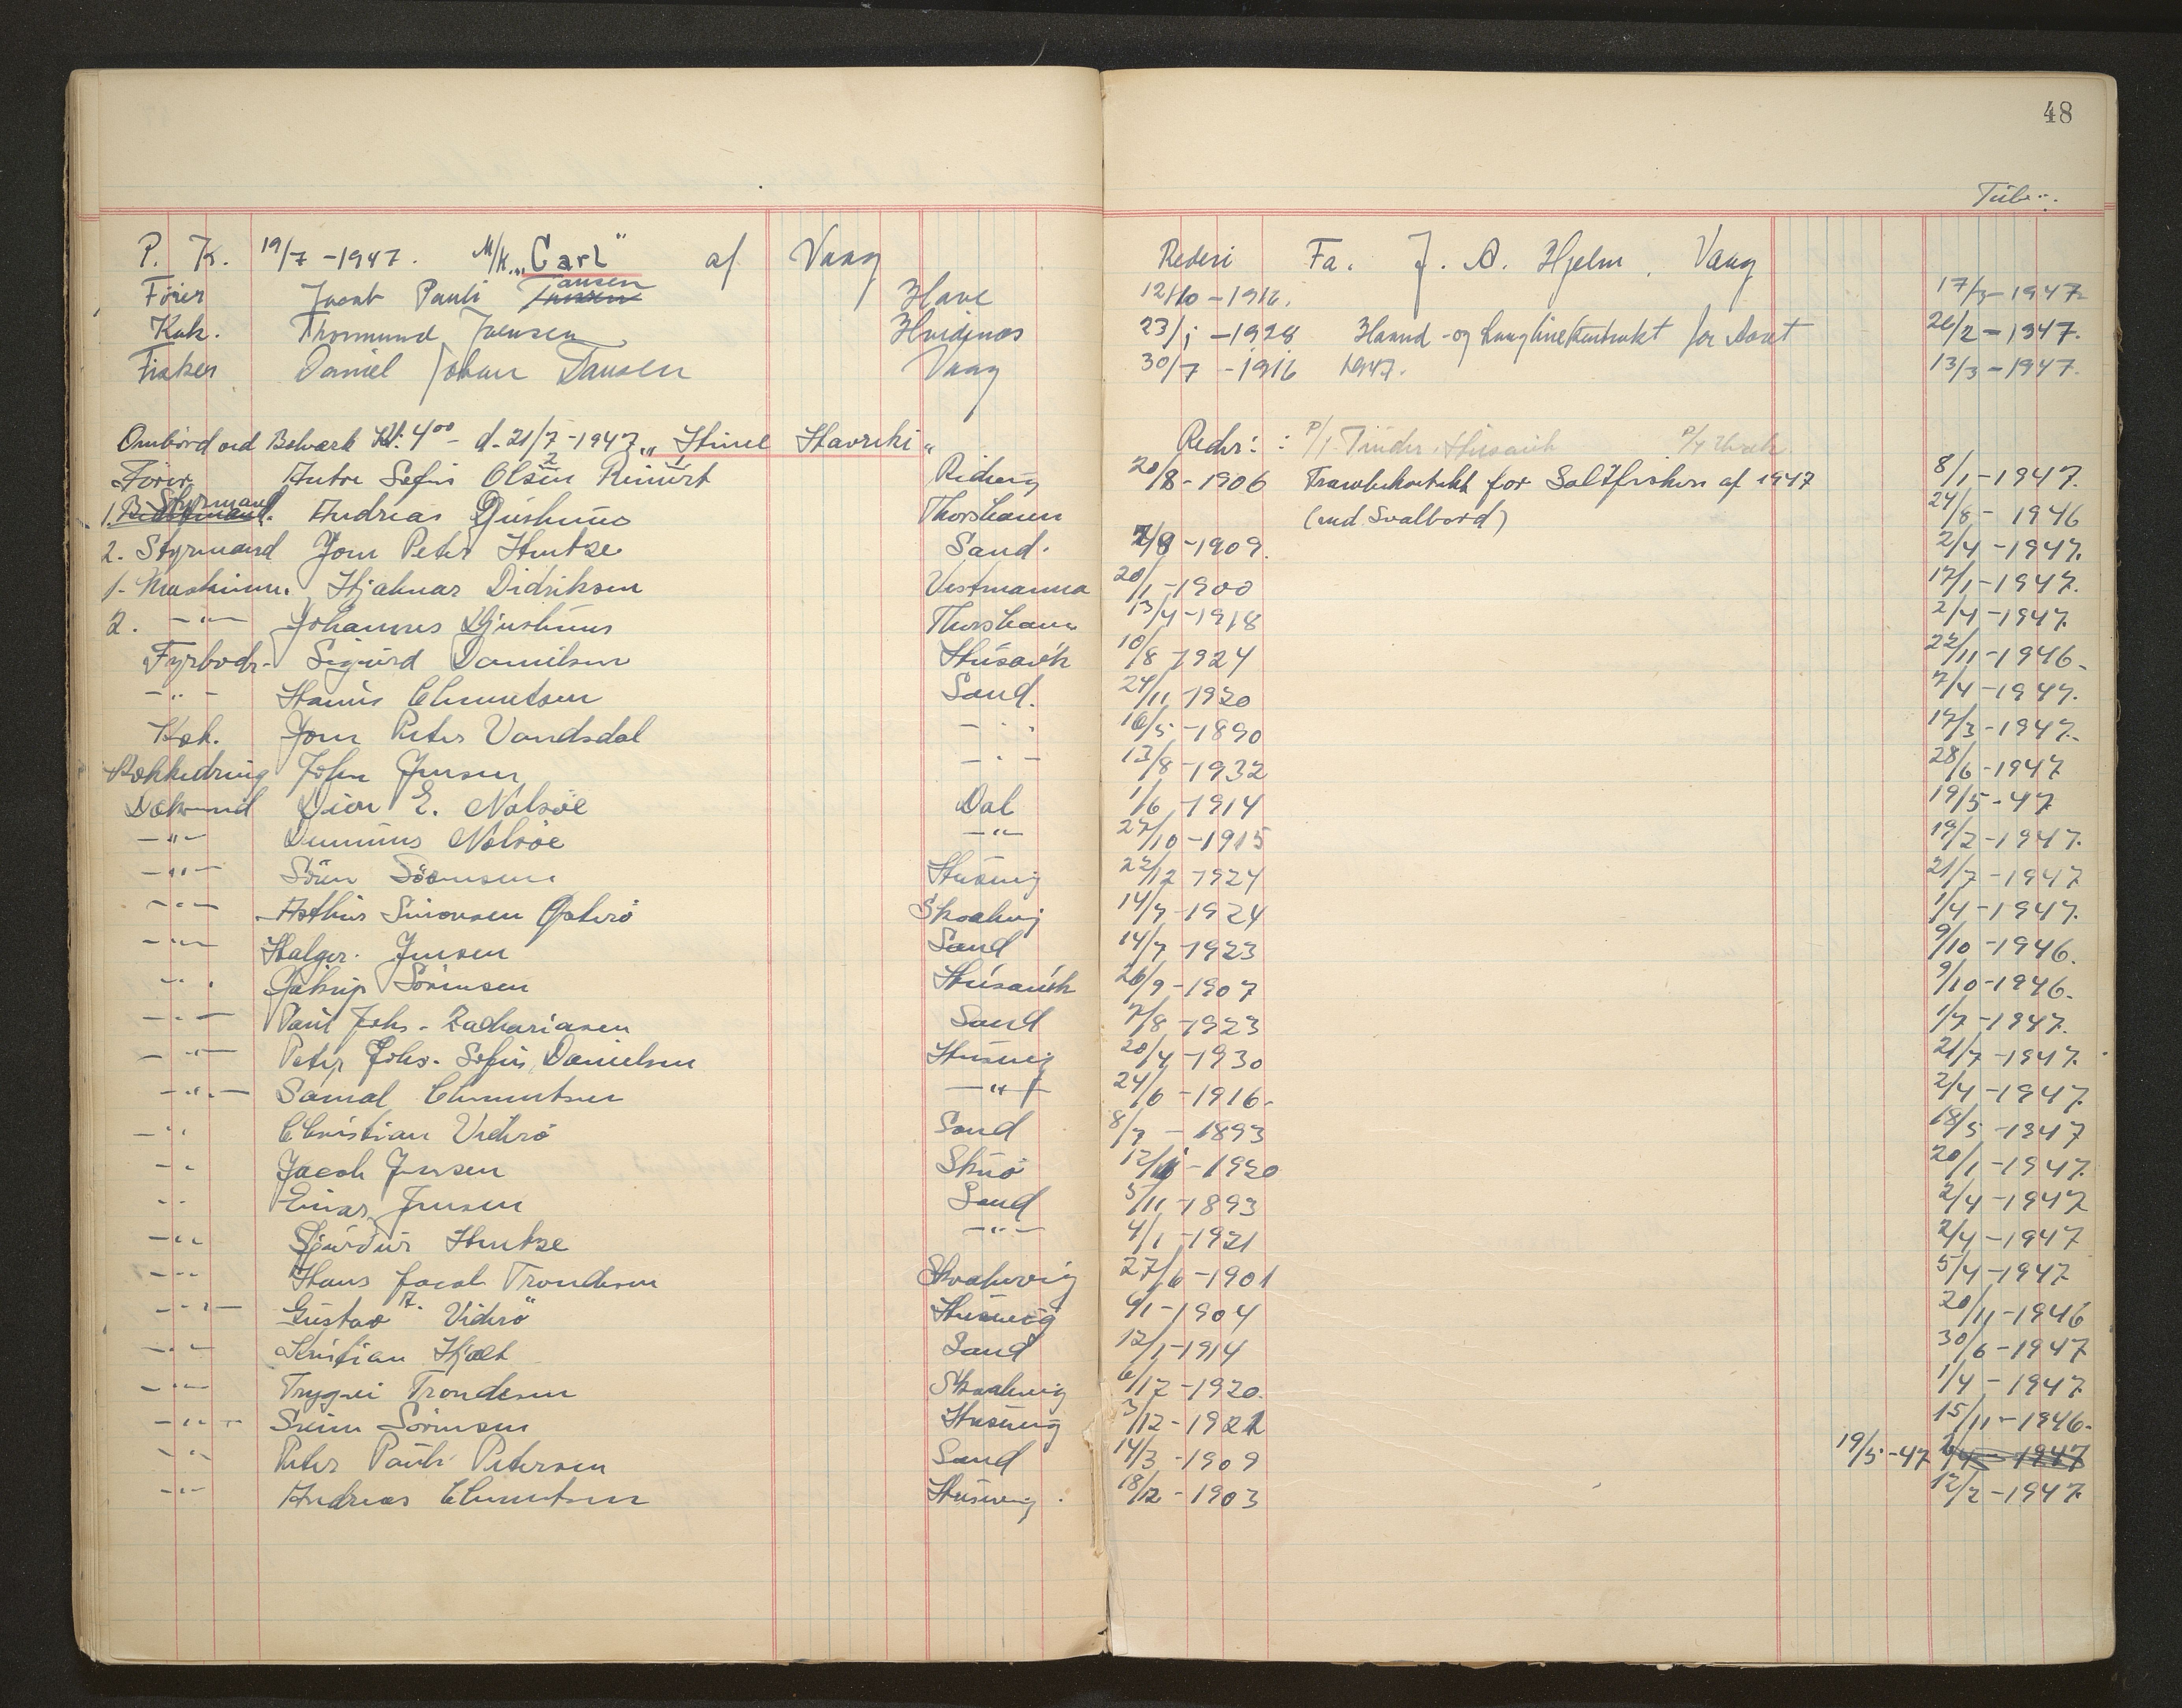 48
Tüb:.
P. K. 19/7-1947. M/K „Carl" af Vaag Rederi Fa. J. A. Hjelm, Vaag
Förer Jacob Pauli Tausen Hove 12/10-1916. 17/3-1947
Kok. Thormund Joensen Hvidenæs 23/1-1928 Haand-og Langlinekontrakt for Aaret 26/2-1947.
Fisker Daniel Johan Tausen Vaag 30/7-1916 1947. 13/3-1947.
Ombord ved Bolværk Kl. 4⁰⁰ d. 21/7-1947 „ “ Reder: : P/f. Tindur. Húsavík
Förer Olsen Reinert 20/8-1906 Trawlkontrakt for Saltfiskeri af 1947 8/1-1947.
1. Styrmand Andreas Djurhuus Thorshavn (ved Svalbard) 24/8-1946
2. Styrmand Jom Peter Hentze Sand. 1909. 2/4-1947.
1. Maskinm. Hjalmar Didriksen Vestmanna 20/1-1900 17/1-1947.
2. -"- Johannes Djurhuus Thorshavn 13/4-1918 2/4-1947.
Fyrbøder Sigurd Danielsen Húsavík 10/8-1924 22/11-1946.
-"- Hanus Clementsen Sand. 24/11-1920 2/4-1947.
Kok. Jom Peter Vandsdal -"- 16/5-1890 17/3-1947.
Kokkedreng John Jensen -"- 13/8-1932 28/6-1947
E. Nolsöe Dal 1/6-1914 19/5-47
-"- Nolsöe -"- 27/10-1915 19/2-1947.
-"- Sören Sörensen Husavig 22/12-1924 21/7-1947
-"- Simonsen Skaalevig 14/7-1924 1/4-1947.
-"- Halgir. Jensen Sand 14/7-1923 9/10-1946.
-"- Jákup Sörensen Húsavík 26/9-1907 9/10-1946.
-"- Paul Johs. Zachariasen Sand 7/8-1923 1/7-1947.
-"- Peter Johs. Sofus Danielsen Husavig 20/4-1930 21/7-1947.
-"- Samal Clementsen -"- 24/6-1916. 2/4-1947.
-"- Christian Viderö Sand 8/7-1893 18/5-1947
-"- Jacob Jensen Skuö 1920 20/1-1947.
-"- Einar Jensen Sand 5/11-1893 2/4-1947
-"- Sjúrður Hentze -"- 4/1-1921 2/4-1947
-"- Hans Jacob Trondesen Skaalevig 27/6-1901 5/4-1947
-"- Gustav A. Viderö Husavig 6/1-1904 20/11-1946
-"- Kristian Hjalt Sand 12/1-1914 30/6-1947
-"- Trygvi Trondesen Skaalevig 6/12-1920. 1/4-1947.
-"- Sörensen Husavig 3/12-1921 15/11-1946.
-"- Peter Pauli Petersen Sand 14/3-1909 19/5-47 2/4-1947
-"- Andreas Clementsen Husavig. 18/12-1903 12/2-1947.